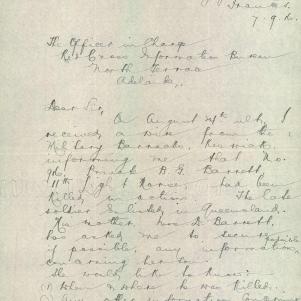 The Officer in Charge
Red Cross Information Bureau
North Terrace
Adelaide.
Dear Sir,
On August 4th ult, I
received a wire from the
Military Barracks, Keswick
informing me that No.
Private B. G. Barrett
11th Light Horse, had been
killed in action. The late
soldier enlisted in Queensland.
His mother, Mrs Barrett,
has asked me to secure
if possible, any information
concerning her son.
She would like to know:
1) When & where he was killed.